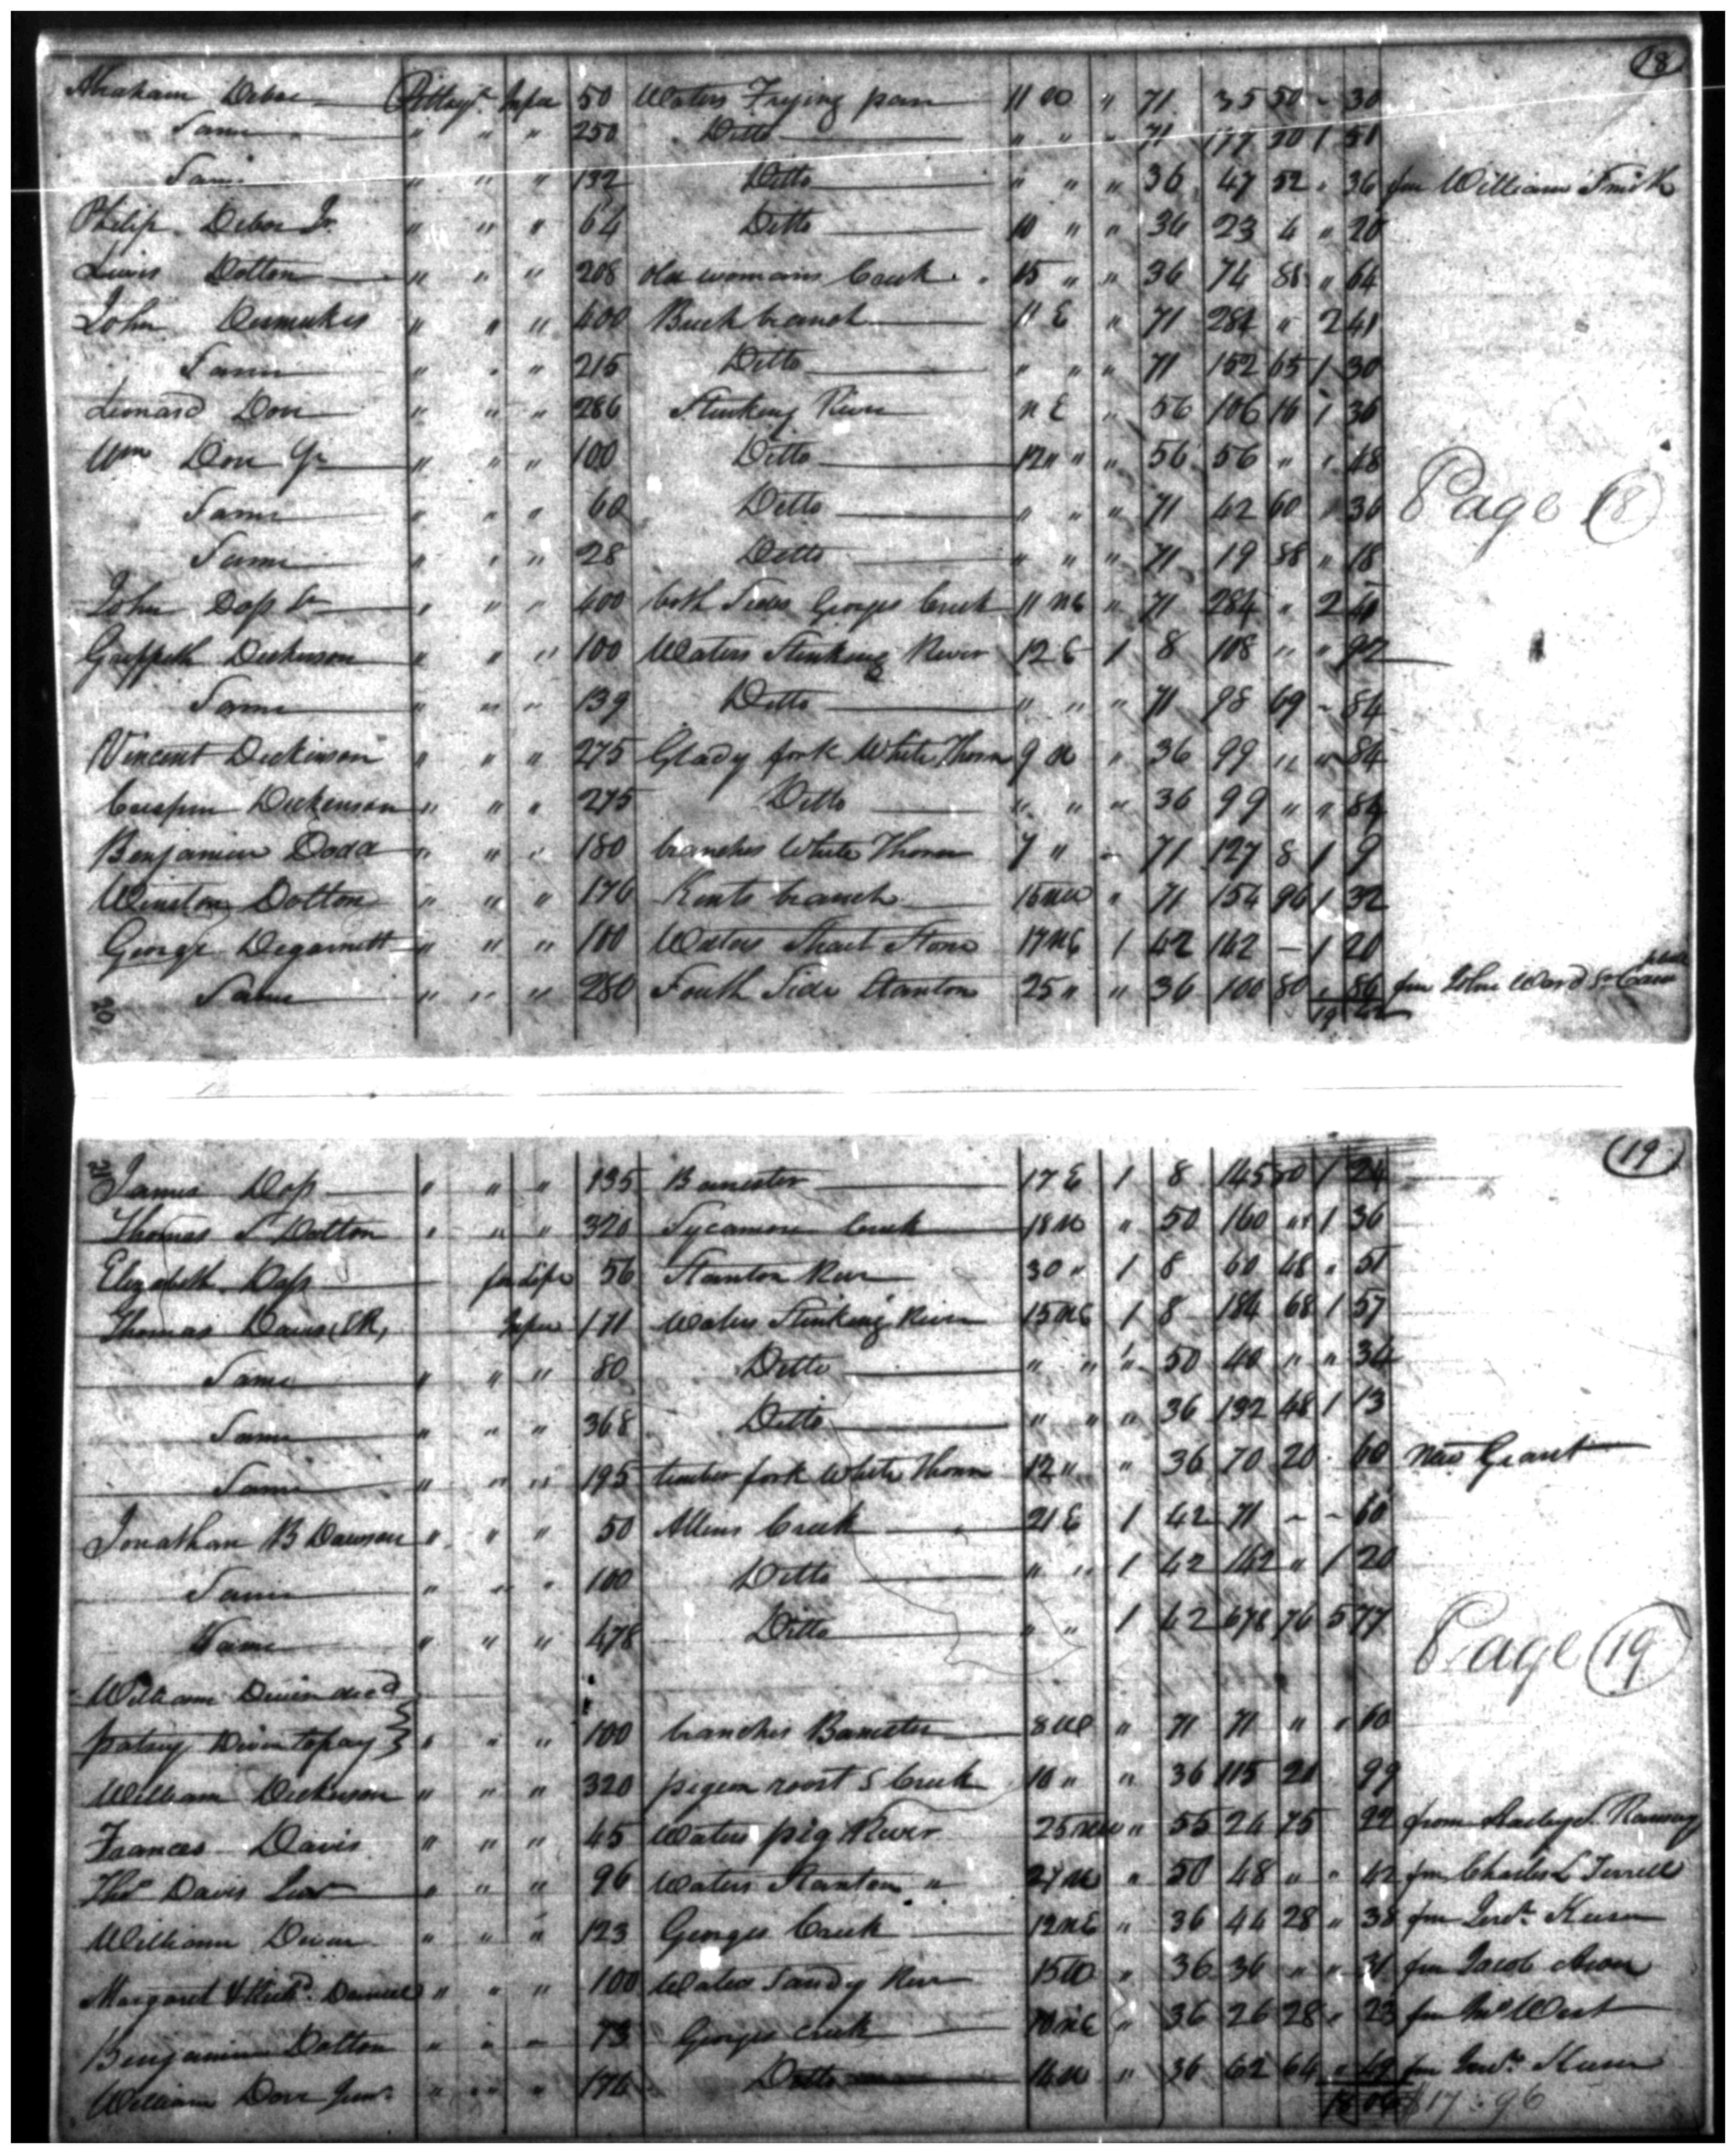 18
Abraham Deboe Pittsya. In fee 50 Waters Frying pan 11 W " 71 35 50 " 30
Same " " " 250 Ditto " " " 71 177 50 1 51
Same " " " 132 Ditto " " " 36 47 52 " 36 fm William Smith
Philip Deboe Jr " " " 64 Ditto 10 " " 36 23 4 " 20
Lewis Dolton " " " 208 old womans Creek 15 " " 36 74 88 " 64
John Dismukes " " " 400 Buck branch 11 E " 71 284 " 2 41
Same " " " 215 Ditto " " " 71 152 65 1 30
Leonard Dove " " " 286 Stinking River 11 E " 56 106 16 1 36
Wm Dove Jr " " " 100 Ditto 12 " " 56 56 " " 48
Same " " " 60 Ditto " " " 71 42 60 " 36
Same " " " 28 Ditto " " " 71 19 88 " 18
Page 18
John Doss Sr " " " 400 both Sides Georges Creek 11 NE " 71 284 " 2 41
Griffeth Dickenson " " " 100 Waters Stinking River 12 E 1 8 108 " " 92
Same " " " 139 Ditto " " " 71 98 69 " 84
Vincent Dickinson " " " 275 Glady fork White Thorn 9 N " 36 99 " " 84
Crispen Dickenson " " " 275 Ditto " " " 36 99 " " 84
Benjamin Dodd " " " 180 branches White Thorn 7 " " 71 127 8 1 9
Winston Dolton " " " 176 Kents branch 15 NW " 71 154 96 1 32
George Degarnett " " " 100 Waters Strait Stone 17 NE 1 42 142 — 1 20
Same " " " 280 South Side Stanton 25 " " 36 100 80 " 86 fm John Ward Sr
20
19
20
James Doss " " " 135 Banester 17 E 1 8 145 80 1 24
Thomas S Dolton " " " 320 Sycamore Creek 18 N " 50 160 " 1 36
Elizabeth Doss for Life 56 Stanton River 30 " 1 8 60 48 " 51
Thomas Davis, SR, In fee 171 Waters Stinking River 15 NE 1 8 184 68 1 57
Same " " " 80 Ditto " " " 50 40 " " 34
Same " " " 368 Ditto " " " 36 132 48 1 13
Same " " " 195 timber fork White Thorn 12 " " 36 70 20 60 New Grant
Jonathan B Dawson " " " 50 Allens Creek 21 E 1 42 71 – – 60
Same " " " 100 Ditto " " 1 42 142 " 1 20
Same " " " 478 Ditto " " 1 42 678 76 5 77
Page 19
William Divin decd
patsy Divin to pay } " " " 100 branches Banester 8 W " 71 71 " " 60
William Dickenson " " " 320 pigeon roost S Creek 10 " " 36 115 20 99
Frances Davis " " " 45 Waters pig River 25 NW " 55 24 75 22 from Ramsey
Thos Davis Junr " " " 96 Waters Stanton " 27 N " 50 48 " " 42 fm Charles L Terrell
William Divin " " " 123 Georges Creek 12 NE " 36 44 28 " 38 fm Keesee
Margaret & " " " 100 Waters Sandy River 15 W " 36 36 " " 31 fm Jacob
Benjamin Dolton " " " 73 Georges Creek 10 NE " 36 26 28 " 23 fm Jno West
William Dove Junr " " " 174 Ditto 14 N " 36 62 64 " 49 fm Keesee
$17:96